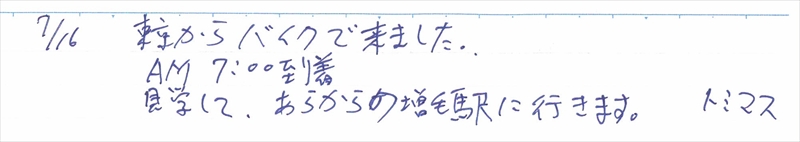 7/16 東京からバイクで来ました。
AM 7:00到着
見学して、増毛駅に行きます。 トミマス